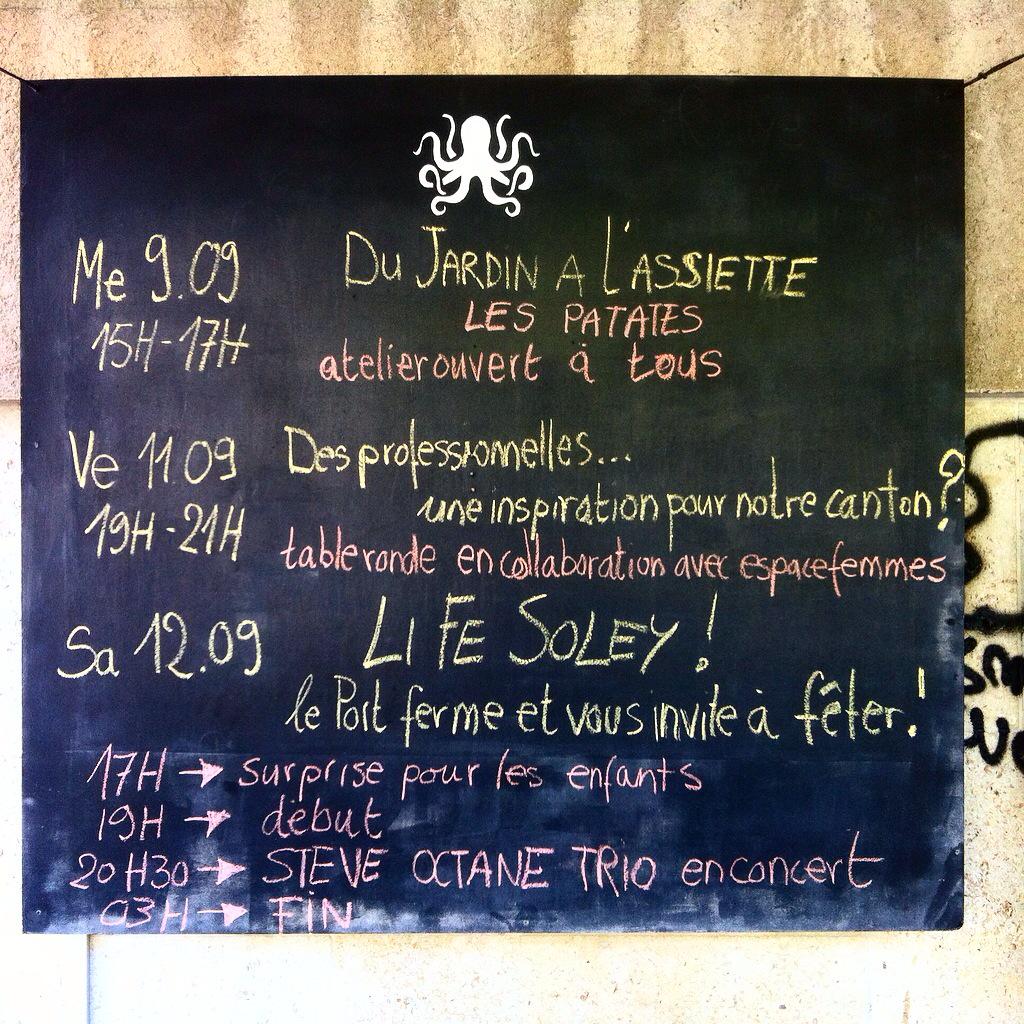 Me 9.09 Du JARDIN A L'ASSIETTE
15H-17H LES PATATES
atelier ouvert à tous
Ve 11.09 Des professionnelles...
19H-21H une inspiration pour notre canton?
table ronde en collaboration avec espacefemmes
Sa 12.09 LI FE SOLEY!
le Port ferme et vous invite à fêter!
17H → surprise pour les enfants
19H → début
20H30 → STEVE OCTANE TRIO en concert
03H → FIN